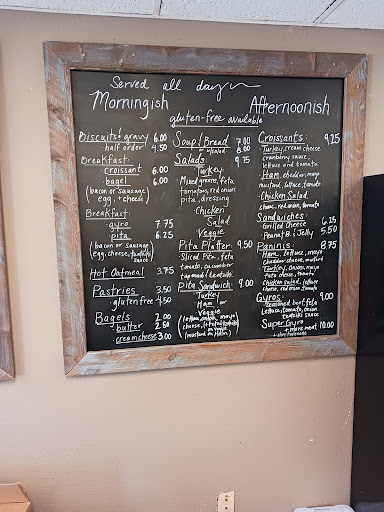 Served all day
Morningish
Afternoonish
gluten-free available
Biscuits & gravy 6.00
half order 4.50
Breakfast:
croissant 6.00
bagel 6.00
(bacon or sausage
egg, + cheese)
Breakfast:
gyro 7.75
pita 6.25
(bacon or sausage
egg, cheese, tzatziki
sauce
Hot Oatmeal 3.75
Pastries 3.50
gluten free 4.50
Bagels 2.00
butter 2.50
creamcheese 3.00
Soup / Bread 7.00
w/salad 8.00
Salads: 9.75
Turkey
Mixed greens, feta
tomatoes, red onion
pita, dressing
Chicken
Salad
Veggie
Pita Platter 9.50
Sliced Pita, feta
tomato, cucumber
tapenade & tzatziki
Pita Sandwich: 9.00
Turkey
Ham or
Veggie
(lettuce, onion, mayo
cheese,
(mustard on Ham)
Croissants: 9.25
Turkey, cream cheese
cranberry sauce
lettuce and tomato
Ham, cheddar, mayo
mustard, lettuce, tomato
Chicken Salad
red onion, tomato
Sandwiches
Grilled Cheese 6.25
Peanut B. & Jelly 5.50
Paninis: 8.75
Ham, lettuce, mayo
cheddar cheese, mustard
Turkey, Onions, mayo
cheese, tomato
chicken salad, lettuce
cheese, red onion, tomato
Gyros: 9.00
Seasoned beef, feta
Lettuce, tomato, onion
tzatziki sauce
Super Gyro
+ more meat 10.00